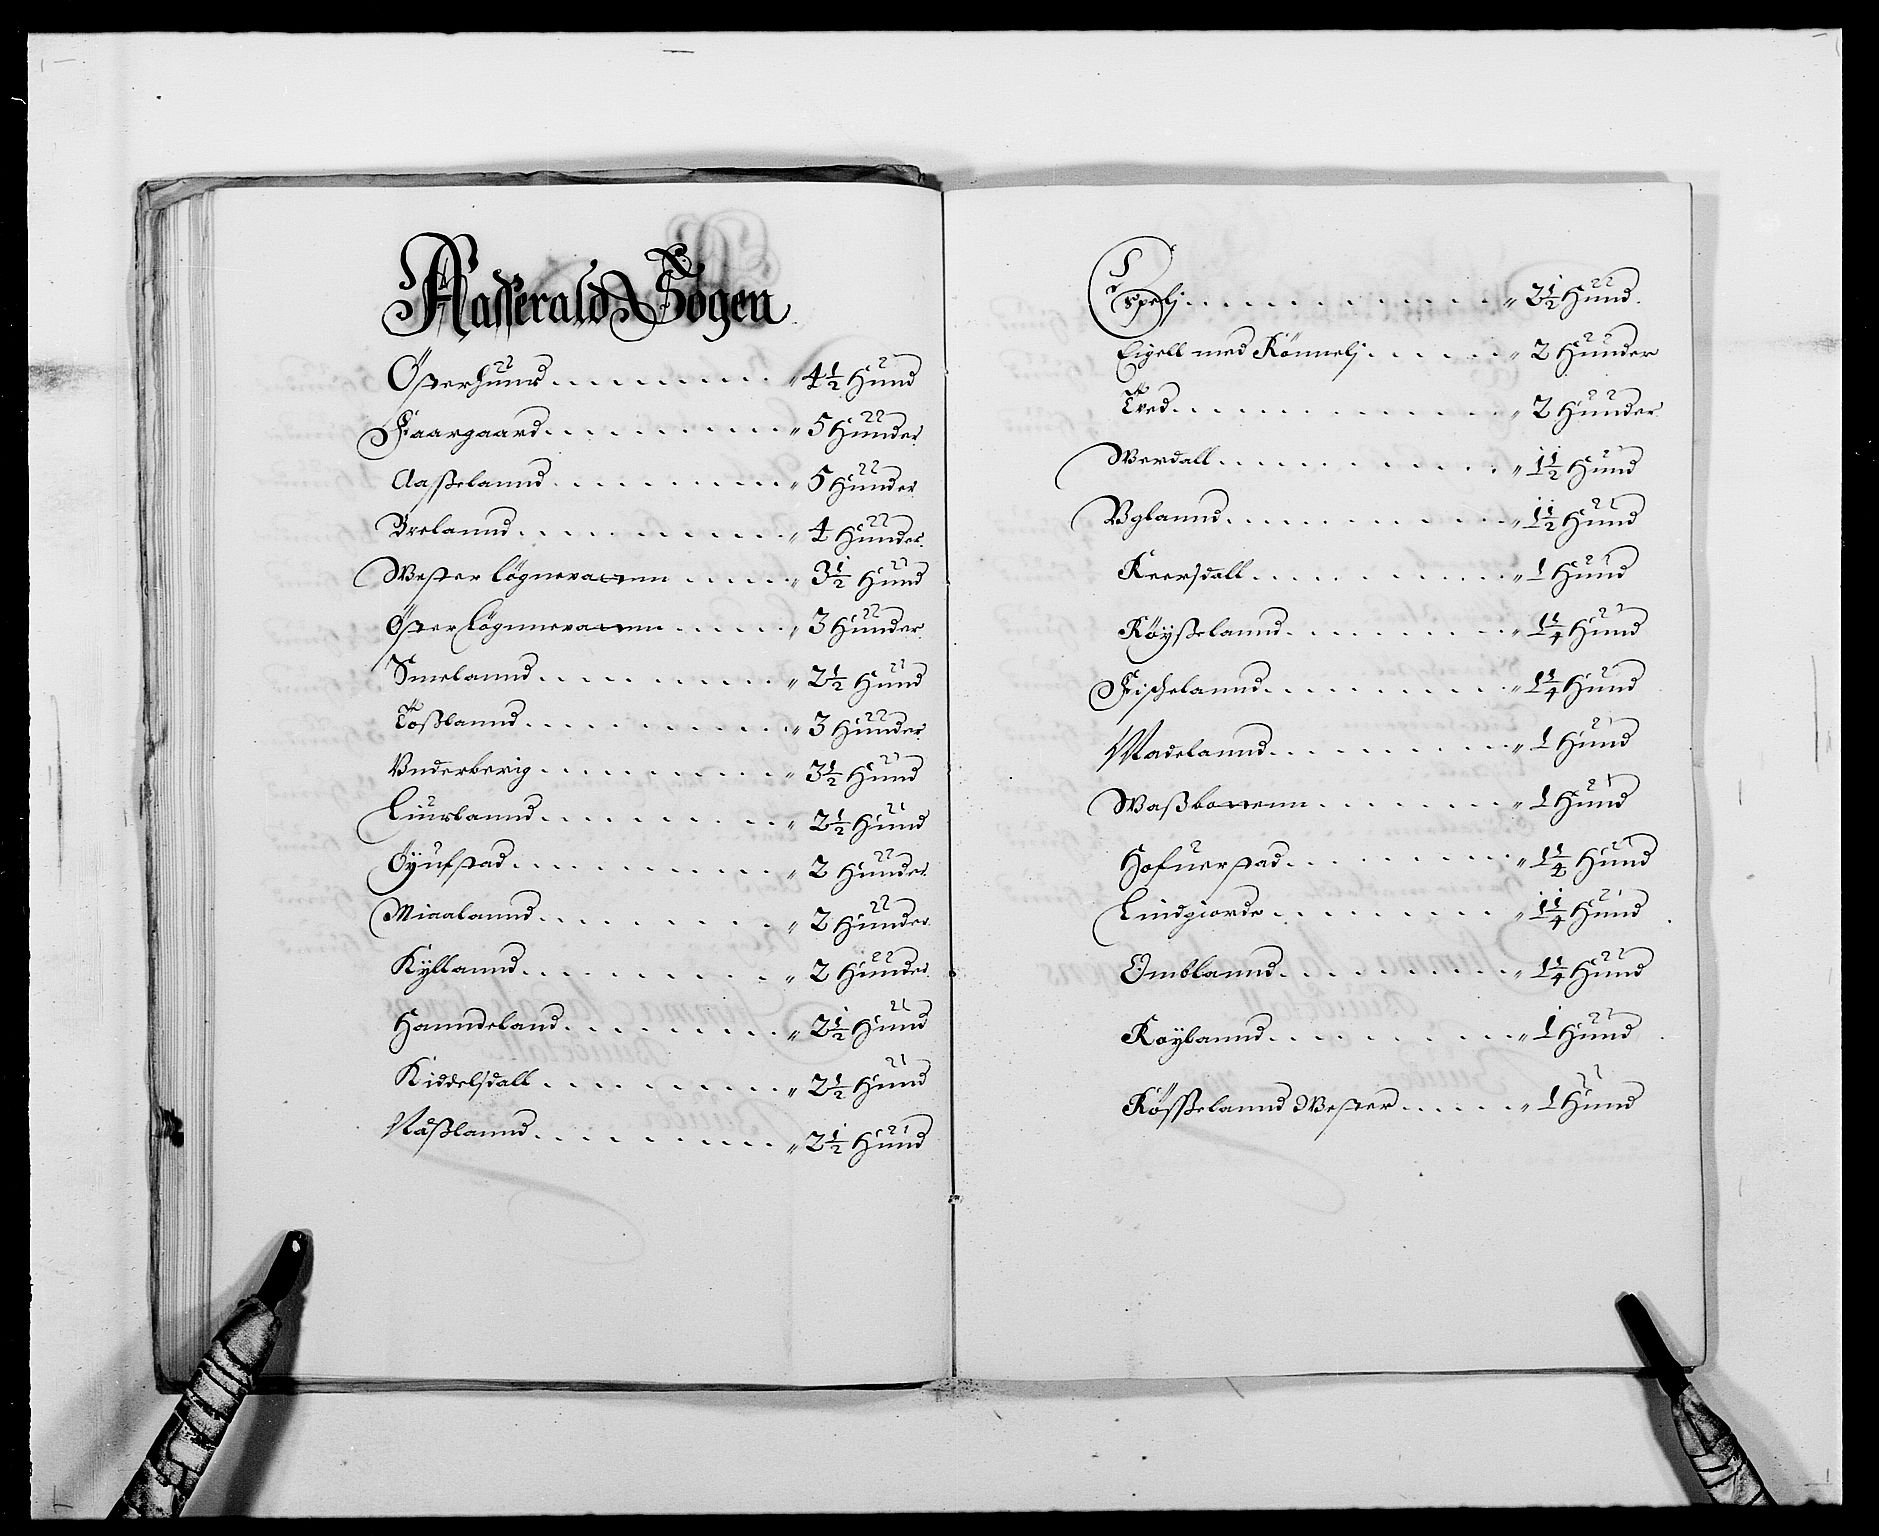 Aasserald Sogen
Österhuus . . . . . . . . . . „ 4½ Hund
Faargaard . . . . . . . . . . „ 5 Hunder
Aaßelannd . . . . . . . . . . „ 5 Hunder
Brelannd . . . . . . . . . . „ 4 Hunder
Wester Lögnevannn . . . . . „ 3½ Hund
Öster Lögnnevannn . . . . . „ 3 Hunder
Smelannd . . . . . . . . . . „ 2½ Hund
Toßlannd . . . . . . . . . . „ 3 Hunder
Vnderberig . . . . . . . . . . „ 3½ Hund
Liurlannd . . . . . . . . . . „ 2½ Hund
Öyufstad . . . . . . . . . . „ 2 Hunder
Miaalannd . . . . . . . . . . „ 2 Hunder
Kyllannd . . . . . . . . . . „ 2 Hunder
Hanndeland . . . . . . . . . „ 2½ Hund
Kiddelsdall . . . . . . . . . „ 2½ Hund
Naßlannd . . . . . . . . . . „ 2½ Hund
Espelj . . . . . . . . . . . . „ 2½ Hund
Eigell med Rönnelj . . . . . „ 2 Hunder
Tved . . . . . . . . . . . . „ 2 Hunder
Werdall . . . . . . . . . . . „ 1½ Hund
Vglannd . . . . . . . . . . . „ 1½ Hund
Reersdall . . . . . . . . . . „ 1 Hund
Röyßelannd . . . . . . . . . „ 1¼ Hund
Fischelannd . . . . . . . . . „ 1¼ Hund
Madelannd . . . . . . . . . „ 1 Hund
Waßbonenn . . . . . . . . „ 1 Hund
Hofuerstad . . . . . . . . . „ 1¼ Hund
Lindgiorde . . . . . . . . . „ 1¼ Hund
Omblannd . . . . . . . . . „ 1¼ Hund
Roylannd . . . . . . . . . . „ 1 Hund
Rösselannd Wester . . . . . „ 1 Hund